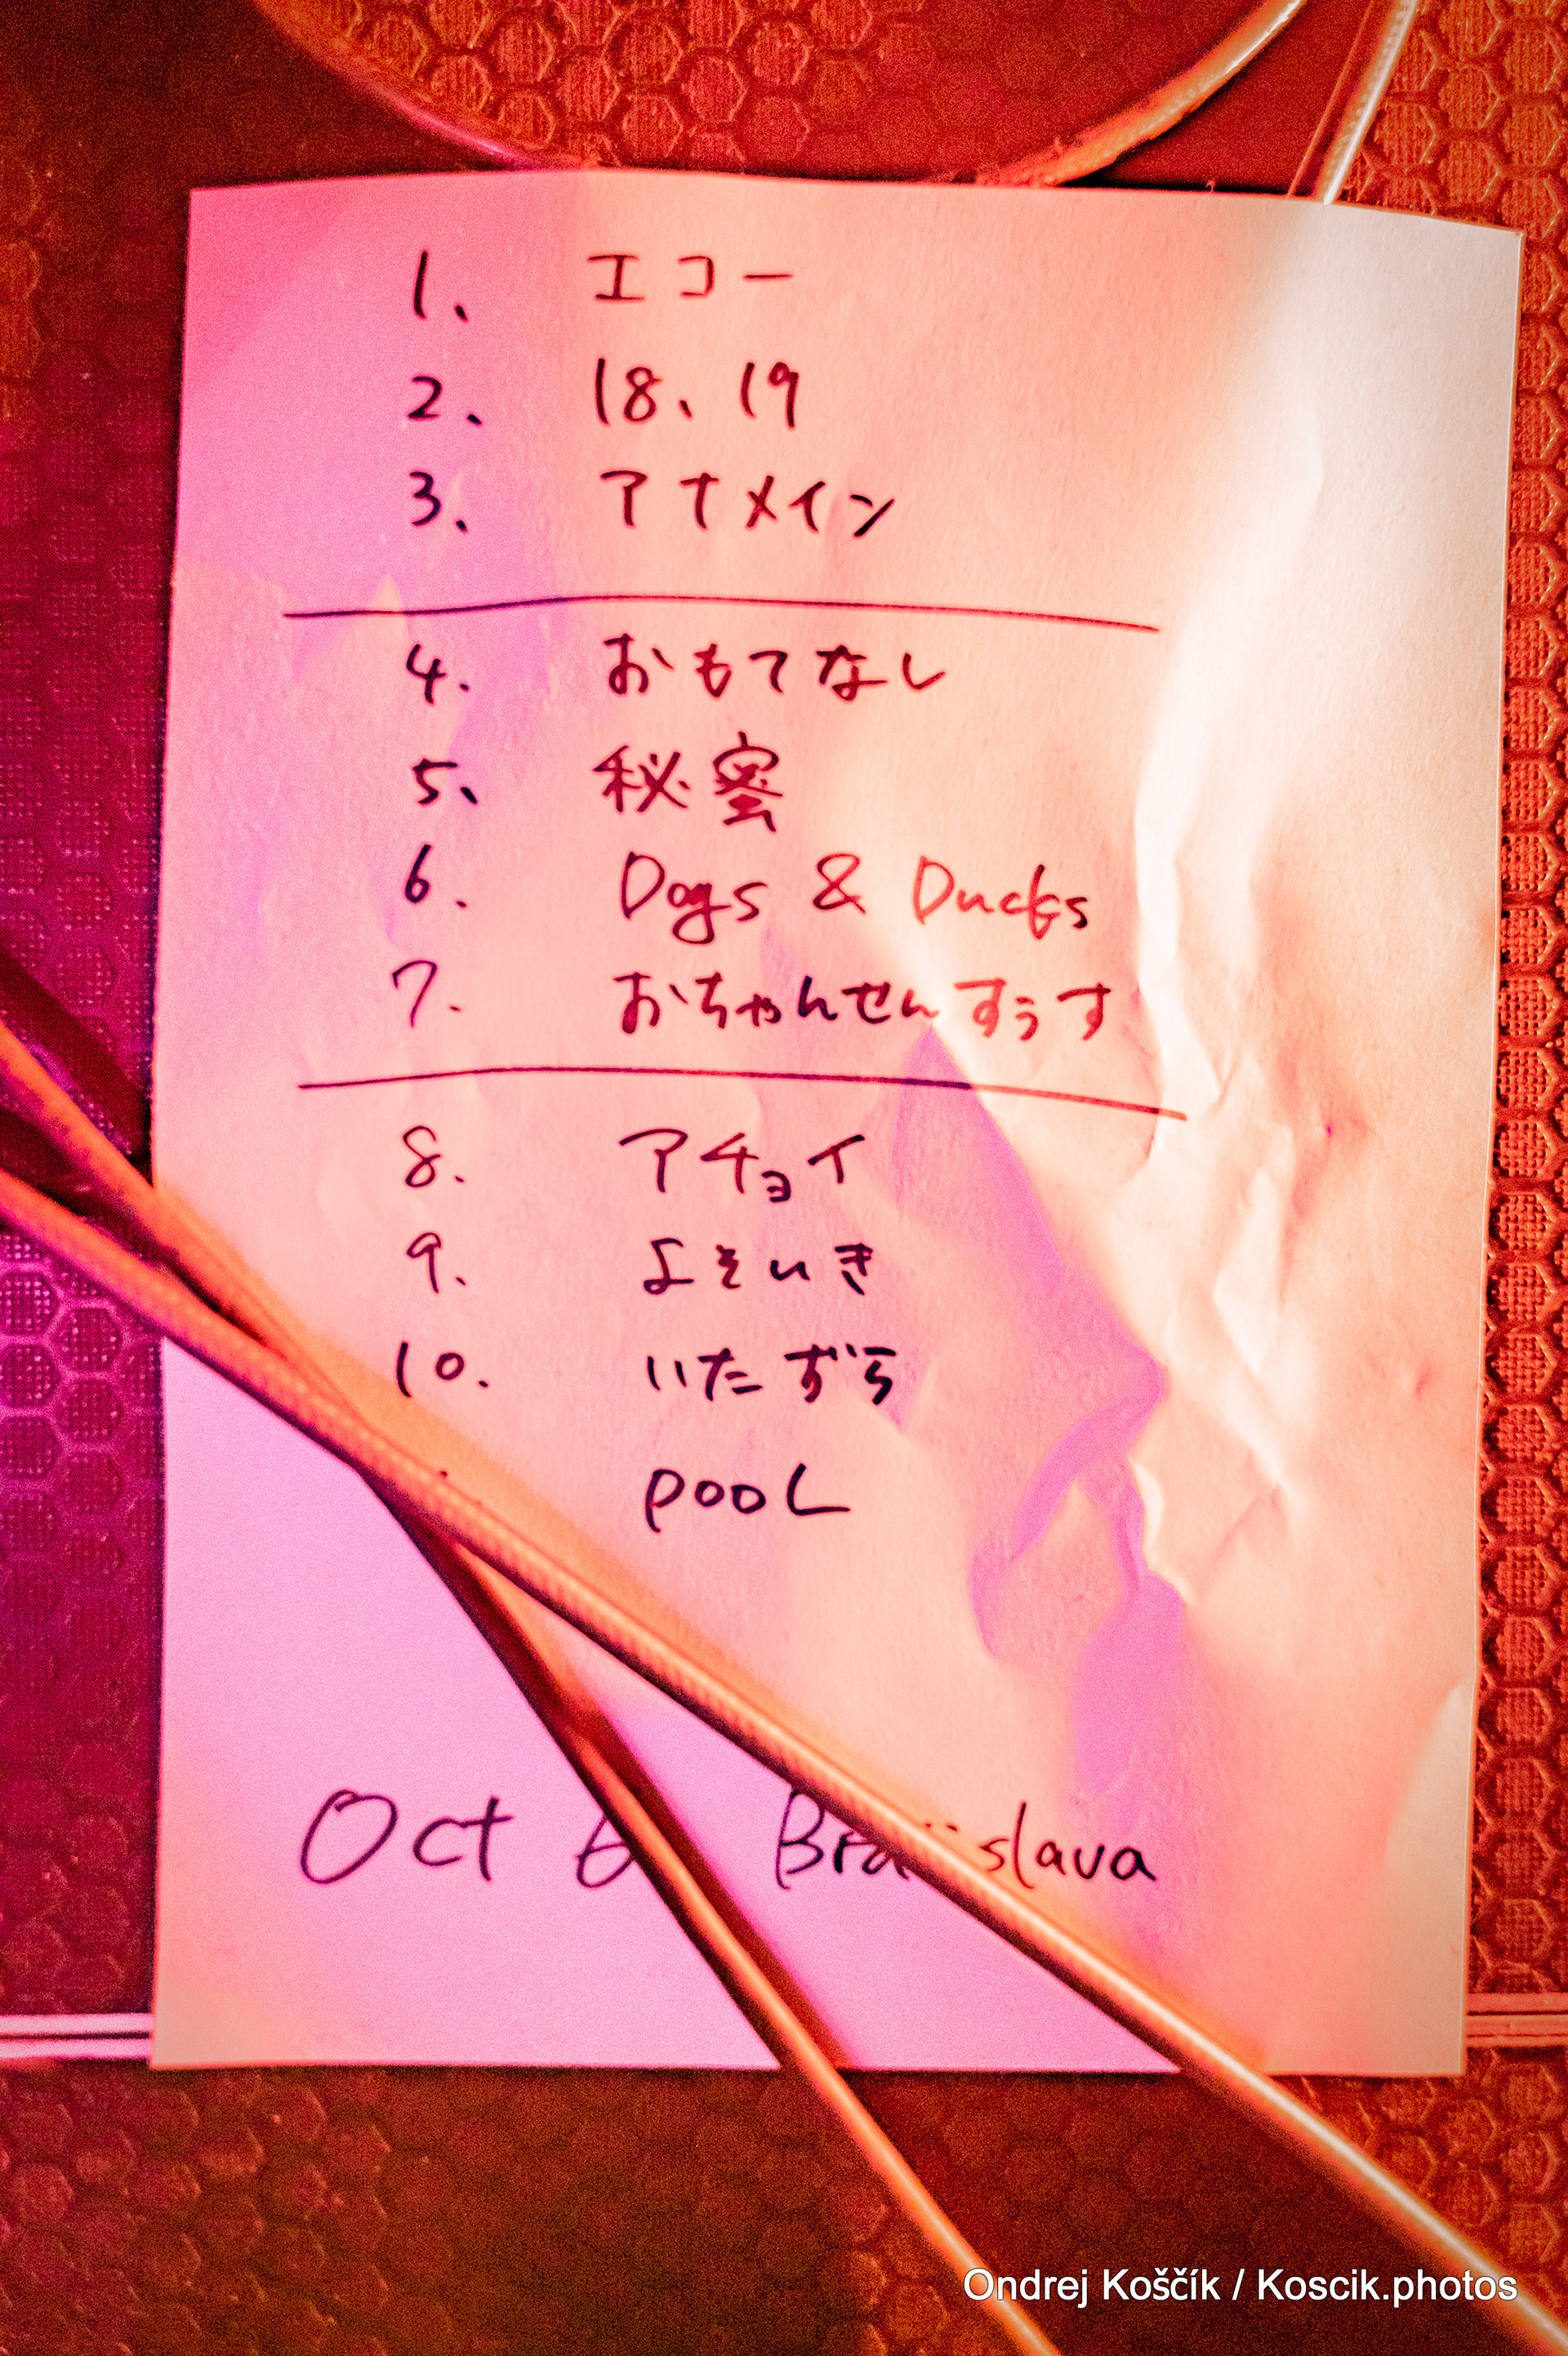 1. エコー
2. 18、19
3. アナメイン
4. おもてなし
5. 秘蜜
6. Dogs & Ducks
7. おちゃんせんすぅす
8. アチョイ
9. よそいき
10. いたずら
pool
Oct
Ondrej Koščík / Koscik.photos